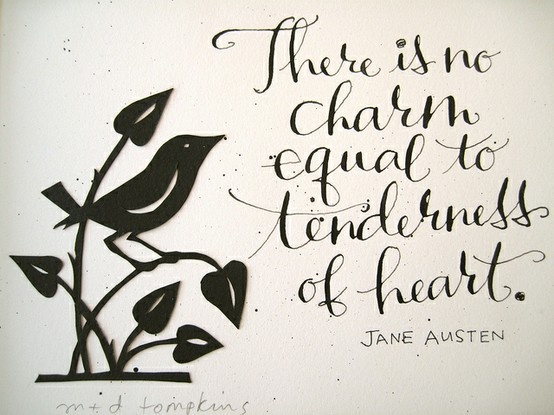 There is no
charm
equal to
tenderness
of heart.
JANE AUSTEN
m+d tompkins